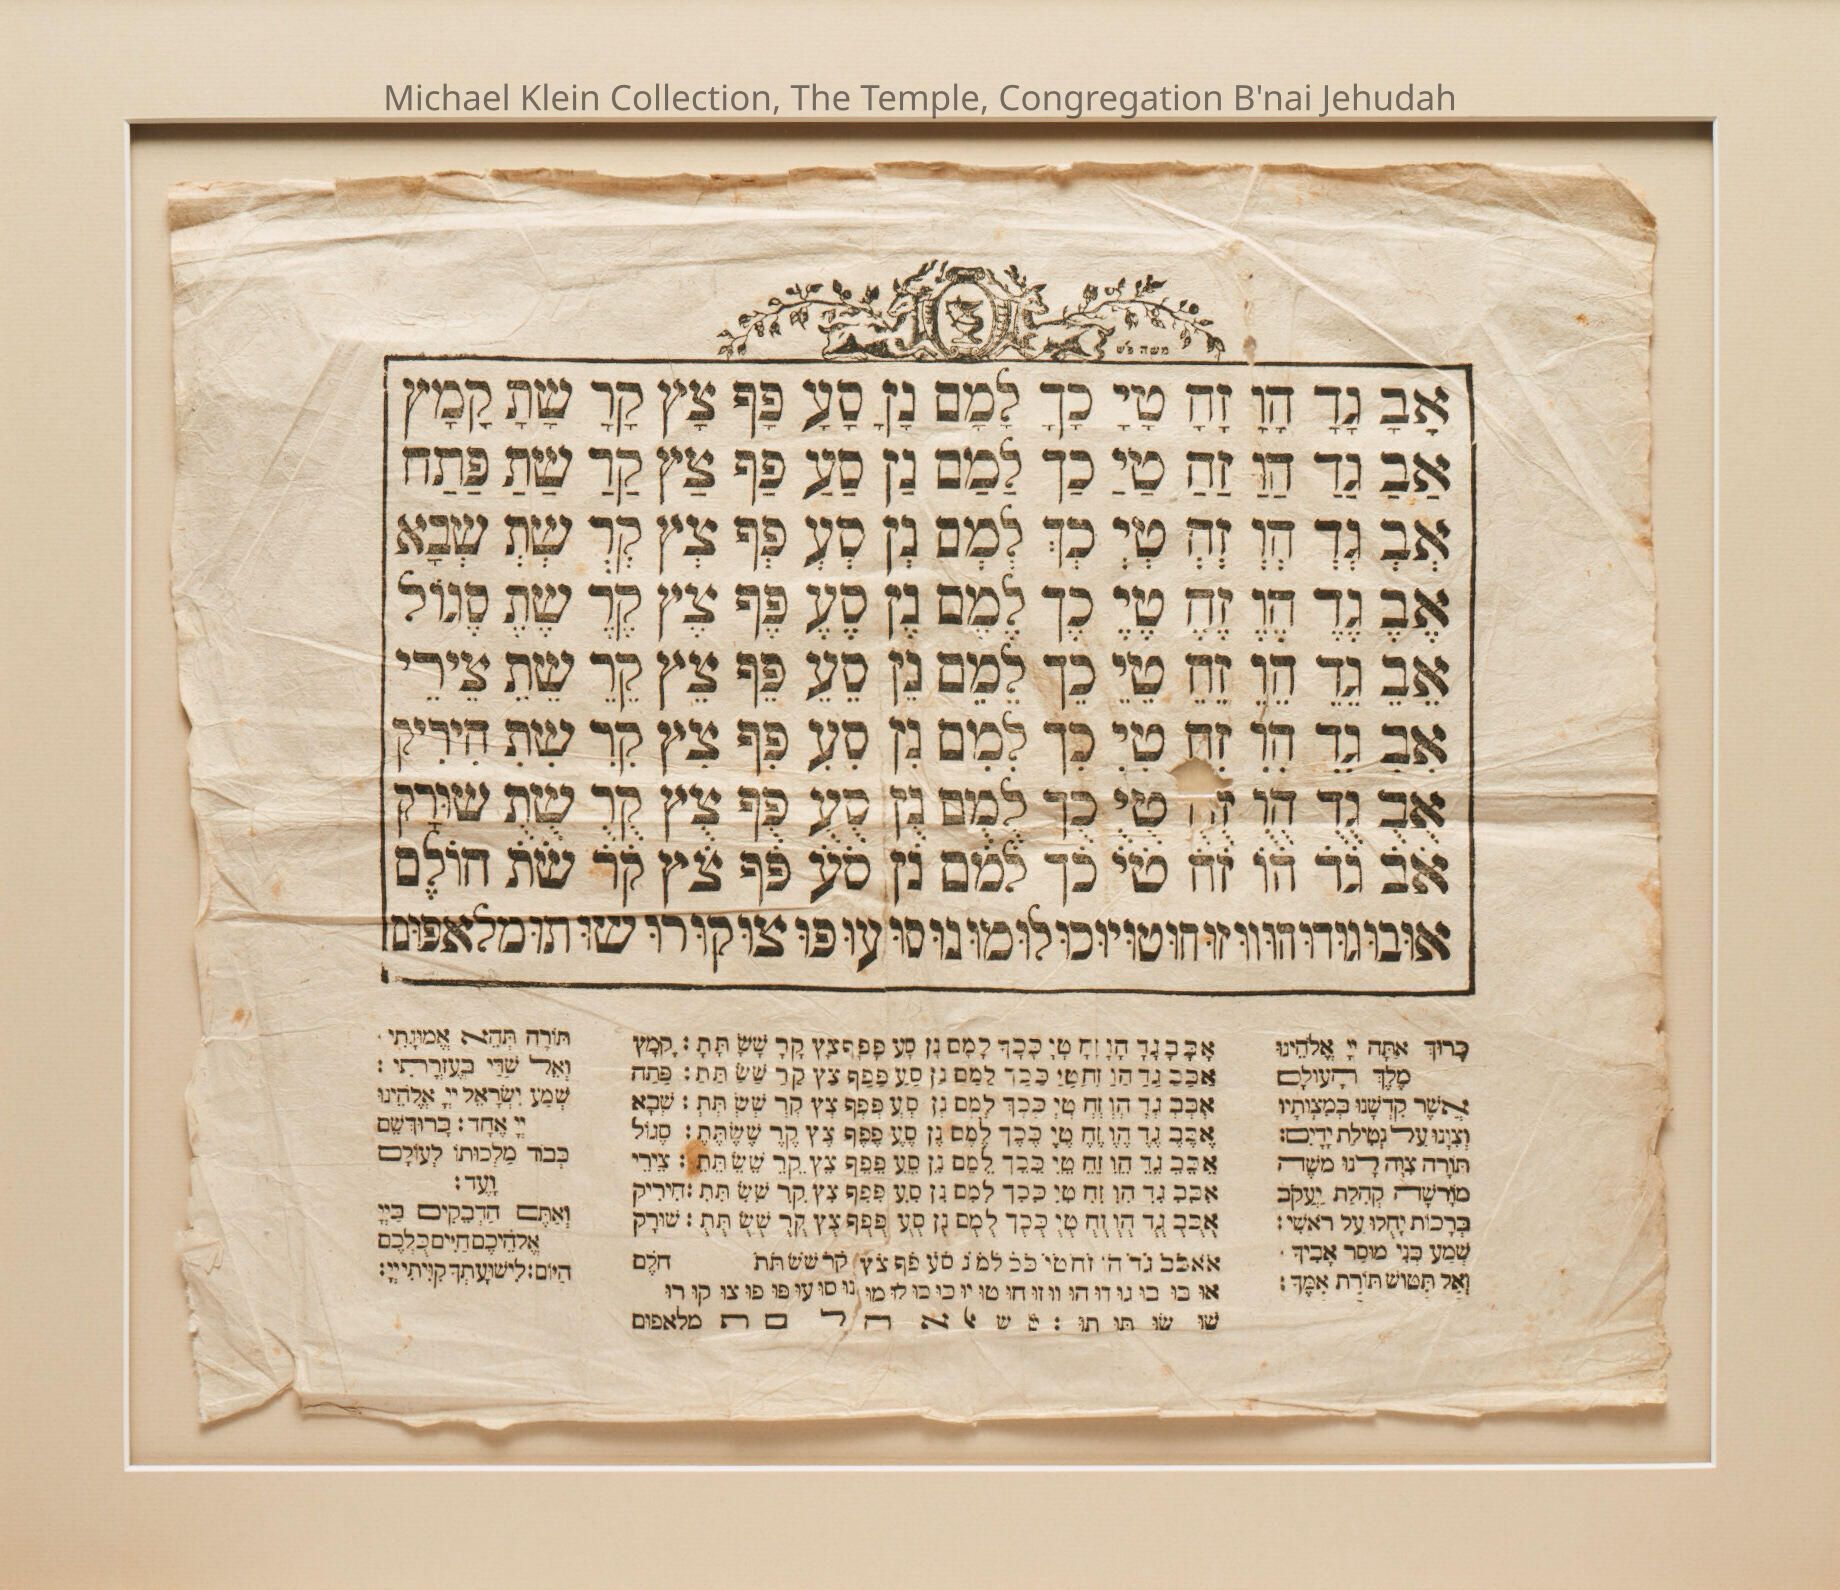 Michael Klein Collection, The Temple, Congregation B'nai Jehudah
משה
אָבָ גָדָ הָוָ זָחָ טָיָ כָךָ לָמָם נָןָ סָעָ פָףָ צָץָ קָרָ שָתָ קָמָץ
אַבַ גַדַ הַוַ זַחַ טַיַ כַךַ לַמַם נַןַ סַעַ פַףַ צַץַ קַרַ שַתַ פַּתַח
אְבְ גְדְ הְוְ זְחְ טְיְ כְךְ לְמְם נְןְ סְעְ פְףְ צְץְ קְרְ שְתְ שְבָא
אֶבֶ גֶדֶ הֶוֶ זֶחֶ טֶיֶ כֶךֶ לֶמֶם נֶןֶ סֶעֶ פֶףֶ צֶץֶ קֶרֶ שֶתֶ סֶגוֹל
אֵבֵ גֵדֵ הֵוֵ זֵחֵ טֵיֵ כֵךֵ לֵמֵם נֵןֵ סֵעֵ פֵףֵ צֵץֵ קֵרֵ שֵתֵ צֵירֵי
אִבִ גִדִ הִוִ זִחִ טִיִ כִךִ לִמִם נִןִ סִעִ פִףִ צִץִ קִרִ שִתִ חִירִיק
אֻבֻ גֻדֻ הֻוֻ טֻיֻ כֻךֻ לֻמֻם נֻןֻ סֻעֻ פֻףֻ צֻץֻ קֻרֻ שֻתֻ שׁוּרָק
אֹבֹ גֹדֹ הֹוֹ זֹחֹ טֹיֹ כֹךֹ לֹמֹם נֹןֹ סֹעֹ פֹףֹ צֹץֹ קֹרֹ שֹתֹ חוֹלֶם
אוּבוּגוּדוּהוּווּזוּחוּטוּיוּכוּלוּמוּנוּסוּ עוּפוּ צוּקוּרוּ שוּתוּמלאפום
בָּרוּךְ אַתָּה יְיָ אֱלֹהֵינוּ
מֶלֶךְ הָעוֹלָם
אֲשֶׁר קִדְּשָׁנוּ בְּמִצְוֹתָיו
וְצִוָּנוּ עַל נְטִילַת יָדַיִם:
תּוֹרָה צִוָּה לָנוּ מֹשֶׁה
מוֹרָשָׁה קְהִלַּת יַעֲקֹב
בְּרָכוֹת יָחֻלוּ עַל רֹאשִׁי:
שְׁמַע בְּנִי מוּסַר אָבִיךָ
וְאַל תִּטּוֹשׁ תּוֹרַת אִמֶּךָ:
אָבָּבָ גָדָ הָוָ זָחָ טָיָ כָּכָךָ לָמָם נָןָ סָעָ פָּפָףָ צָץָ קָרָ שָׁשָׂ תָּתָ: קָמָץ
אַבַּבַ גַדַ הַוַ זַחַ טַיַ כַּכַךַ לַמַם נַןַ סַעַ פַּפַףַ צַץַ קַרַ שַׁשַׂ תַּתַ: פַּתַח
אְבְּבְ גְדְ הְוְ זְחְ טְיְ כְּכְךְ לְמְם נְןְ סְעְ פְּפְףְ צְץְ קְרְ שְׁשְׂ תְּתְ: שְׁבָא
אֶבֶּבֶ גֶדֶ הֶוֶ זֶחֶ טֶיֶ כֶּכֶךֶ לֶמֶם נֶןֶ סֶעֶ פֶּפֶףֶ צֶץֶ קֶרֶ שֶׁשֶׂ תֶּתֶ: סֶגוֹל
אֵבֵּבֵ גֵדֵ הֵוֵ זֵחֵ טֵיֵ כֵּכֵךֵ לֵמֵם נֵןֵ סֵעֵ פֵּפֵףֵ צֵץֵ קֵרֵ שֵׁשֵׂ תֵּתֵ: צֵירֵי
אִבִּבִ גִדִ הִוִ זִחִ טִיִ כִּכִךִ לִמִם נִןִ סִעִ פִּפִףִ צִץִ קִרִ שִׁשִׂ תִּתִ: חִירִיק
אֻבֻּבֻ גֻדֻ הֻוֻ זֻחֻ טֻיֻ כֻּכֻךֻ לֻמֻם נֻןֻ סֻעֻ פֻּפֻףֻ צֻץֻ קֻרֻ שֻׁשֻׂ תֻּתֻ: שׁוּרָק
גֹדֹ זֹחֹטֹיֹ סֹעֹ פֹףֹ צֹץֹ קֹרֹ חֹלֶם
אוּ בּוּ בוּ גוּ דוּ הוּ ווּ זוּ חוּ טוּ יוּ כּוּ כוּ לוּ מוּ נוּ סוּ עוּ פּוּ פוּ צוּ קוּ רוּ
שׁוּ שׂוּ תּוּ תוּ: מלאפום
תּוֹרָה תְּהֵא אֱמוּנָתִי
וְאֵל שַׁדַּי בְּעֶזְרָתִי:
שְׁמַע יִשְׂרָאֵל יְיָ אֱלֹהֵינוּ
יְיָ אֶחָד: בָּרוּךְ שֵׁם
כְּבוֹד מַלְכוּתוֹ לְעוֹלָם
וָעֶד:
וְאַתֶּם הַדְּבֵקִים בַּיְיָ
אֱלֹהֵיכֶם חַיִּים כֻּלְּכֶם
הַיּוֹם: לִישׁוּעָתְךָ קִוִּיתִי יְיָ: